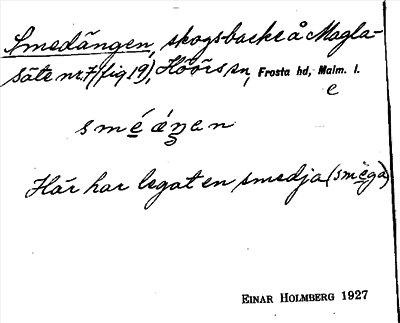 Smedängen, skogsbacke å Magla-
säte nr. 7 (fig 19), Höörs sn, Frosta hd, Malm. l.
e
smé ǽŋan
Här har legat en smedja (smèga)
EINAR HOLMBERG 1927